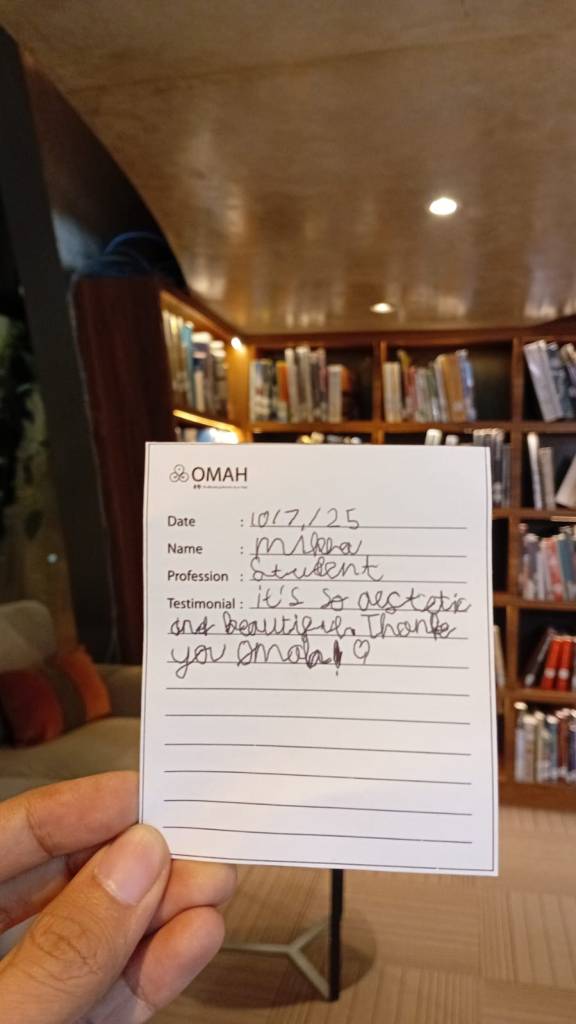 OMAH
Date : 10/7/25
Name : Mikha
Profession : Student
Testimonial : it's so aestetic
and beautiful. Thank
you Omah! ♡